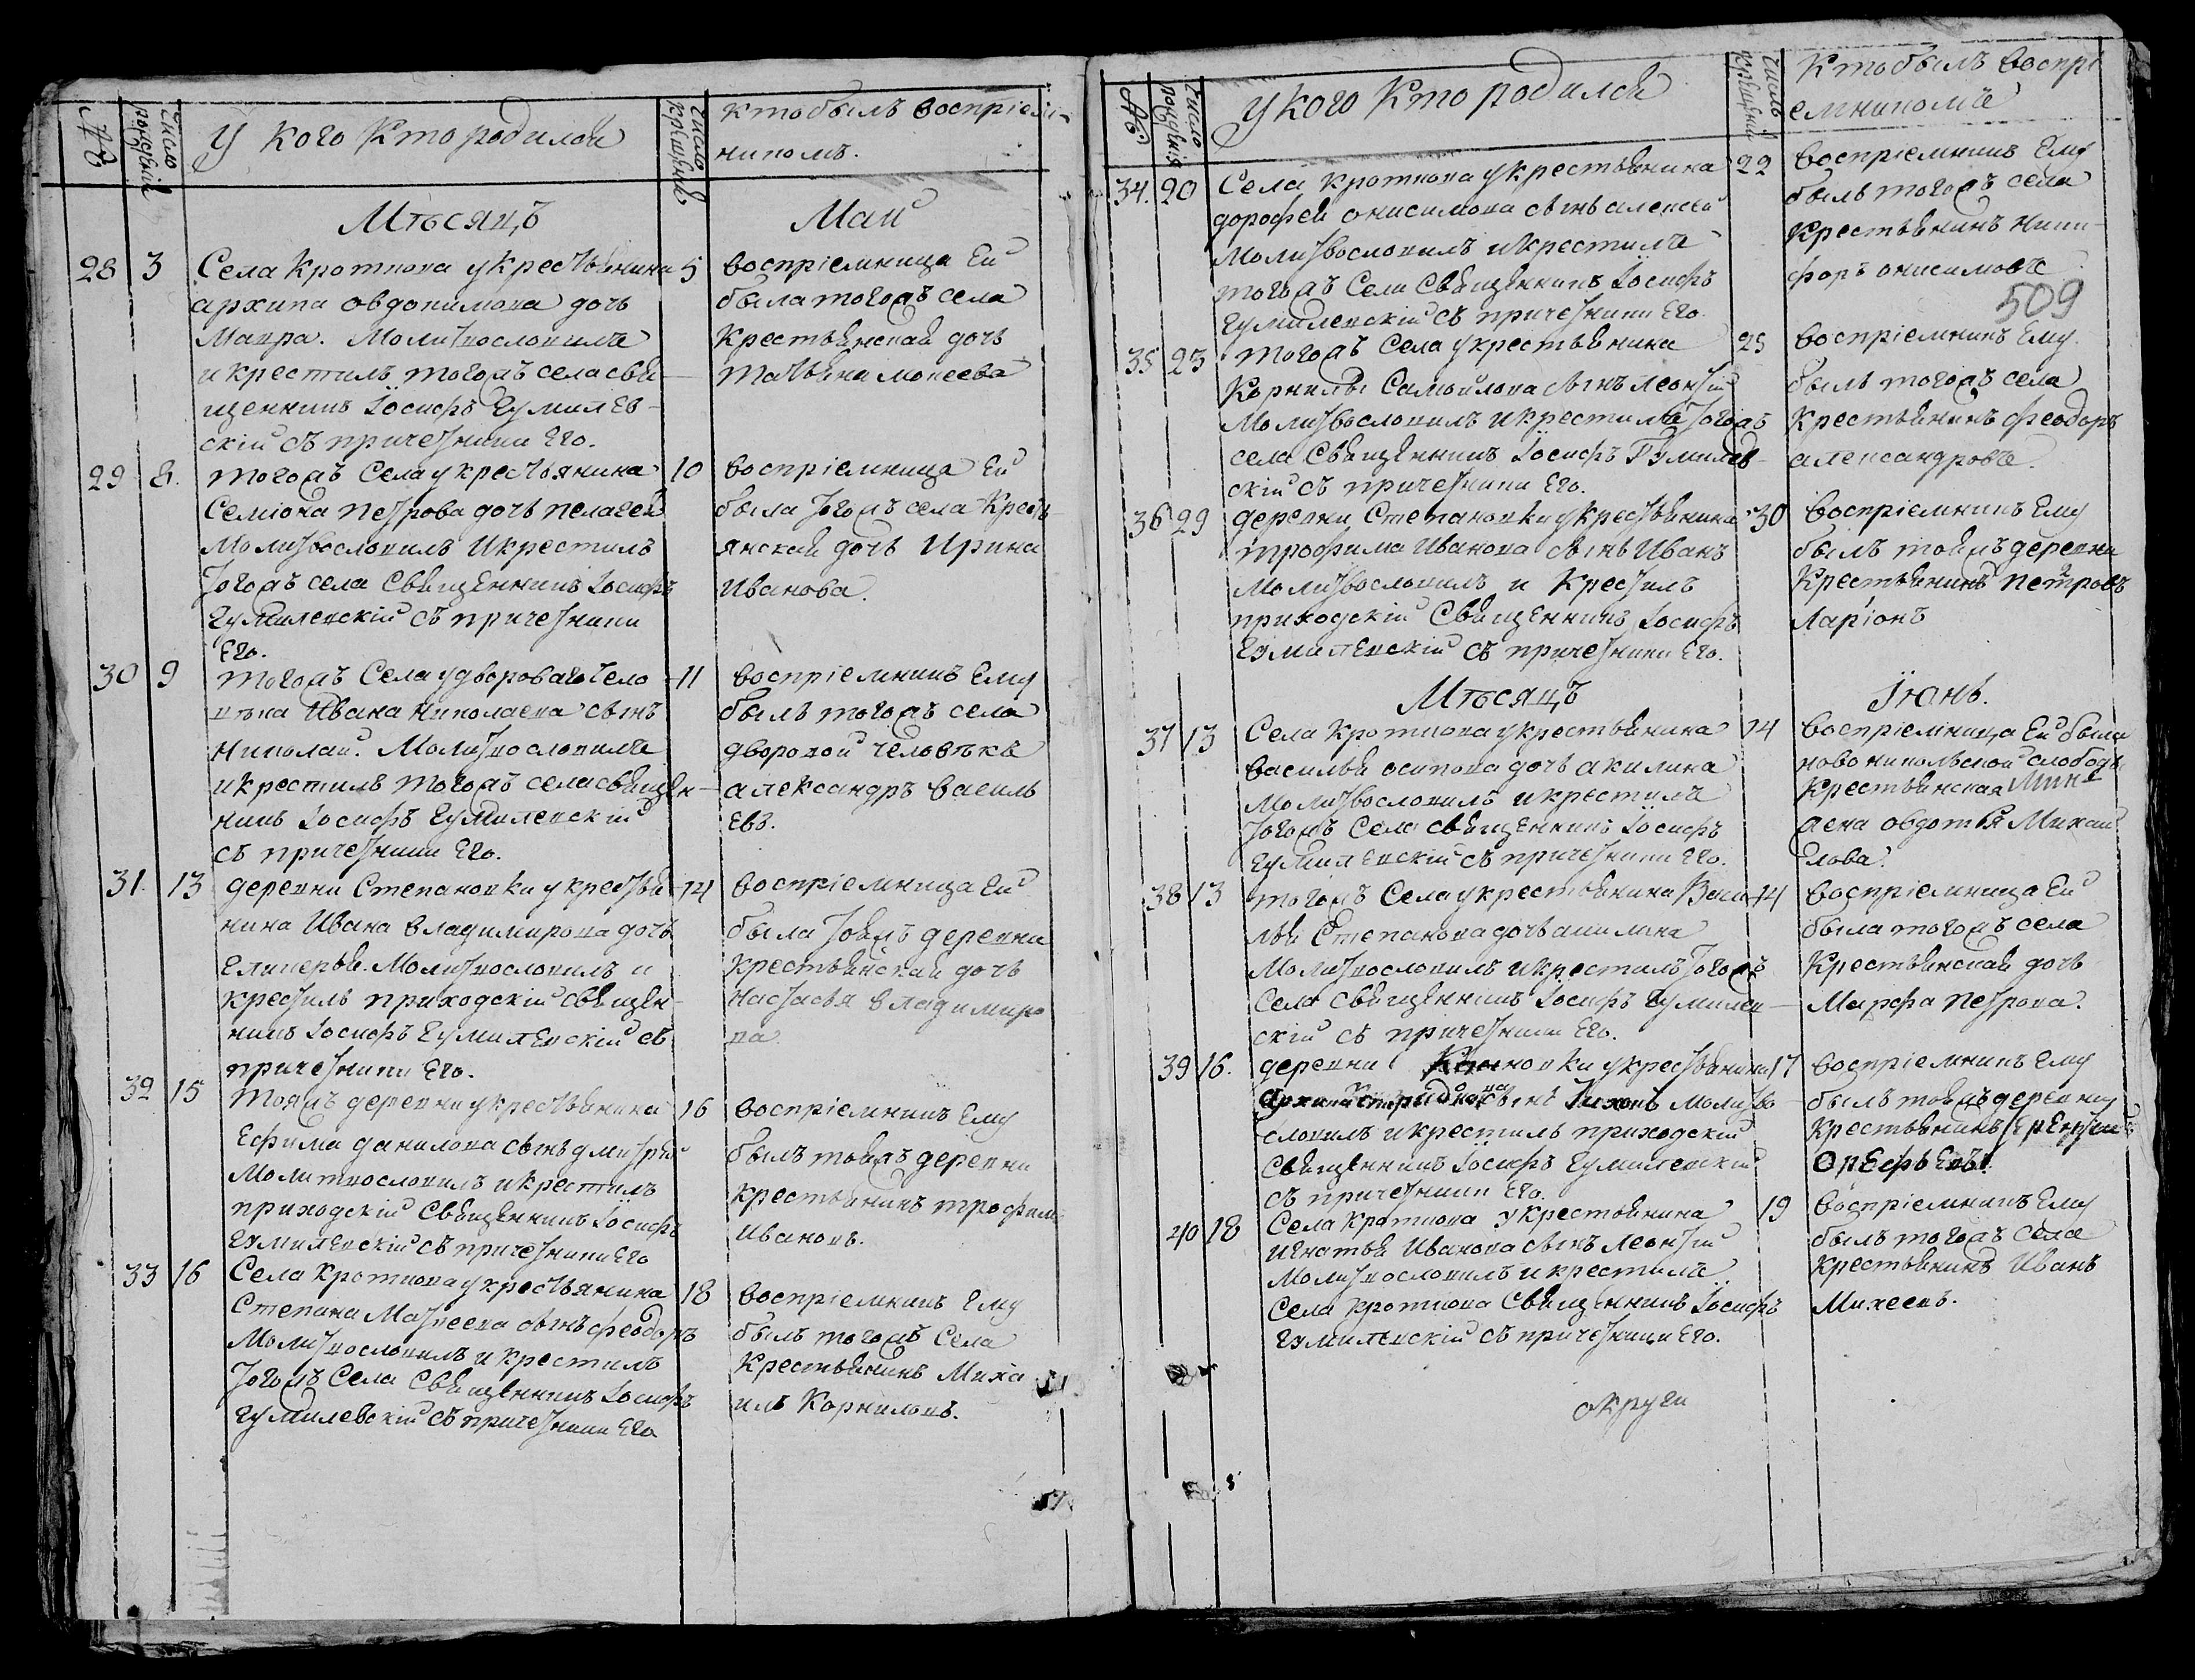 №
число рождения
У кого Кто родился
число крещения
кто былъ воспріем-
никомъ.
Мѣсяцъ
Маи
28
3
Села Кроткова укрестьянина
5
архипа овдокимова дочь
Мавра. Молитвословилъ
и крестилъ тогожъ села свя-
щенникъ Іосифъ Гумилев-
скій съ причетники Его.
воспріемница Ей
была тогожъ села
Крестьянская дочь
татьяна моисеева
29
8.
тогожъ Села укрестьянина
10
Семіона петрова дочь пелагея
Молитвословилъ и крестилъ
тогожъ села Священникъ Іосифъ
Гумилевскій съ причетники
Его.
воспріемница Ей
была тогожъ села Кресть
янская дочь Ирина
Иванова.
30
9
тогожъ Села удвороваго чело
11
вѣка Ивана николаева сынъ
николай. Молитвословилъ
и крестилъ тогожъ села священ-
никъ Іосифъ Гумилевскій
съ причетники Его.
воспріемникъ Ему
былъ тогожъ села
дворовой человѣкъ
александръ василь
евъ.
31.
13
деревни Степановки укрестья-
14
нина Ивана владимирова дочь
Гликерья. Молитвословилъ и
крестилъ приходскій священ-
никъ Іосифъ Гумилевскій съ
причетники Его.
воспріемница Ей
была тояжъ деревни
крестьянская дочь
настасья владимиро
ва
32
15
тояжъ деревни укрестьянина
16
Ефима данилова сынъ дмитрей
Молитвословилъ и крестилъ
приходскій Священникъ Іосифъ
Гумилевскій съ причетники Его
воспріемникъ Ему
былъ тояжъ деревни
крестьянинъ трофимъ
Ивановъ.
33
16
Села Кроткова укрестьянина
18
Степана Матвеева сынъ феодоръ
Молитвословилъ и крестилъ
тогожъ Села Священникъ Іосифъ
Гумилевскій съ причетники Его
воспріемникъ Ему
былъ тогожъ Села
Крестьянинъ Миха
илъ Корниловъ.
№
число рождения
У кого Кто родился
число крещения
Кто былъ воспрі
емникомъ
34.
20
Села Кроткова укрестьянина
22
дорофея онисимова сынъ алексей
Молитвословилъ и крестилъ
тогожъ Села Священникъ Іосифъ
Гумилевскій съ причетники Его.
воспріемникъ Ему
былъ тогожъ села
крестьянинъ Ники-
форъ онисимовъ
509
35
23
тогожъ Села укрестьянина
25
Корнилы Самойлова сынъ леонтій
Молитвословилъ и крестилъ тогожъ
села Священникъ Іосифъ Гумилев-
скій съ причетники Его.
воспріемникъ Ему.
былъ тогожъ села
Крестьянинъ феодоръ
александровъ.
36
29
деревни Степановки укрестьянина
30
трофима Иванова сынъ Иванъ
Молитвословилъ и Крестилъ
приходскій Священникъ Іосифъ
Гумилевскій съ причетники Его.
воспріемникъ Ему
былъ тояжъ деревни
Крестьянинъ петровъ
Ларіонъ
Мѣсяцъ
Іюнь.
37
13
Села Кроткова укрестьянина
14
василья осипова дочь акилина
Молитвословилъ и крестилъ
тогожъ Села священникъ Іосифъ
Гумилевскій съ причетники Его.
воспріемница Ей была
новоникольской слободы
Крестьянская Жина
овдотья Михаи
лова.
38
13
тогожъ Села укрестьянина Васи-
14
лья Степанова дочь акилина
Молитвословилъ и крестилъ тогожъ
Села священникъ Іосифъ Гумилев-
скій съ причетники Его.
воспріемница Ей
была тогожъ села
Крестьянская дочь
Марфа петрова.
39
16.
деревни укрестьянина
17
сынъ Тихонъ Молитво
словилъ и крестилъ приходскій
Священникъ Іосифъ Гумилевскій
съ причетники Его.
воспріемникъ Ему
былъ тояжъ деревни
Крестьянинъ
Орефьевъ.
40
18
Села Кроткова укрестьянина
19
игнатья Иванова сынъ леонтій
Молитвословилъ и крестилъ
Села Кроткова Священникъ Іосифъ
Гумилевскій съ причетники Его.
воспріемникъ Ему
былъ тогожъ села
Крестьянинъ Иванъ
Михеевъ.
округи